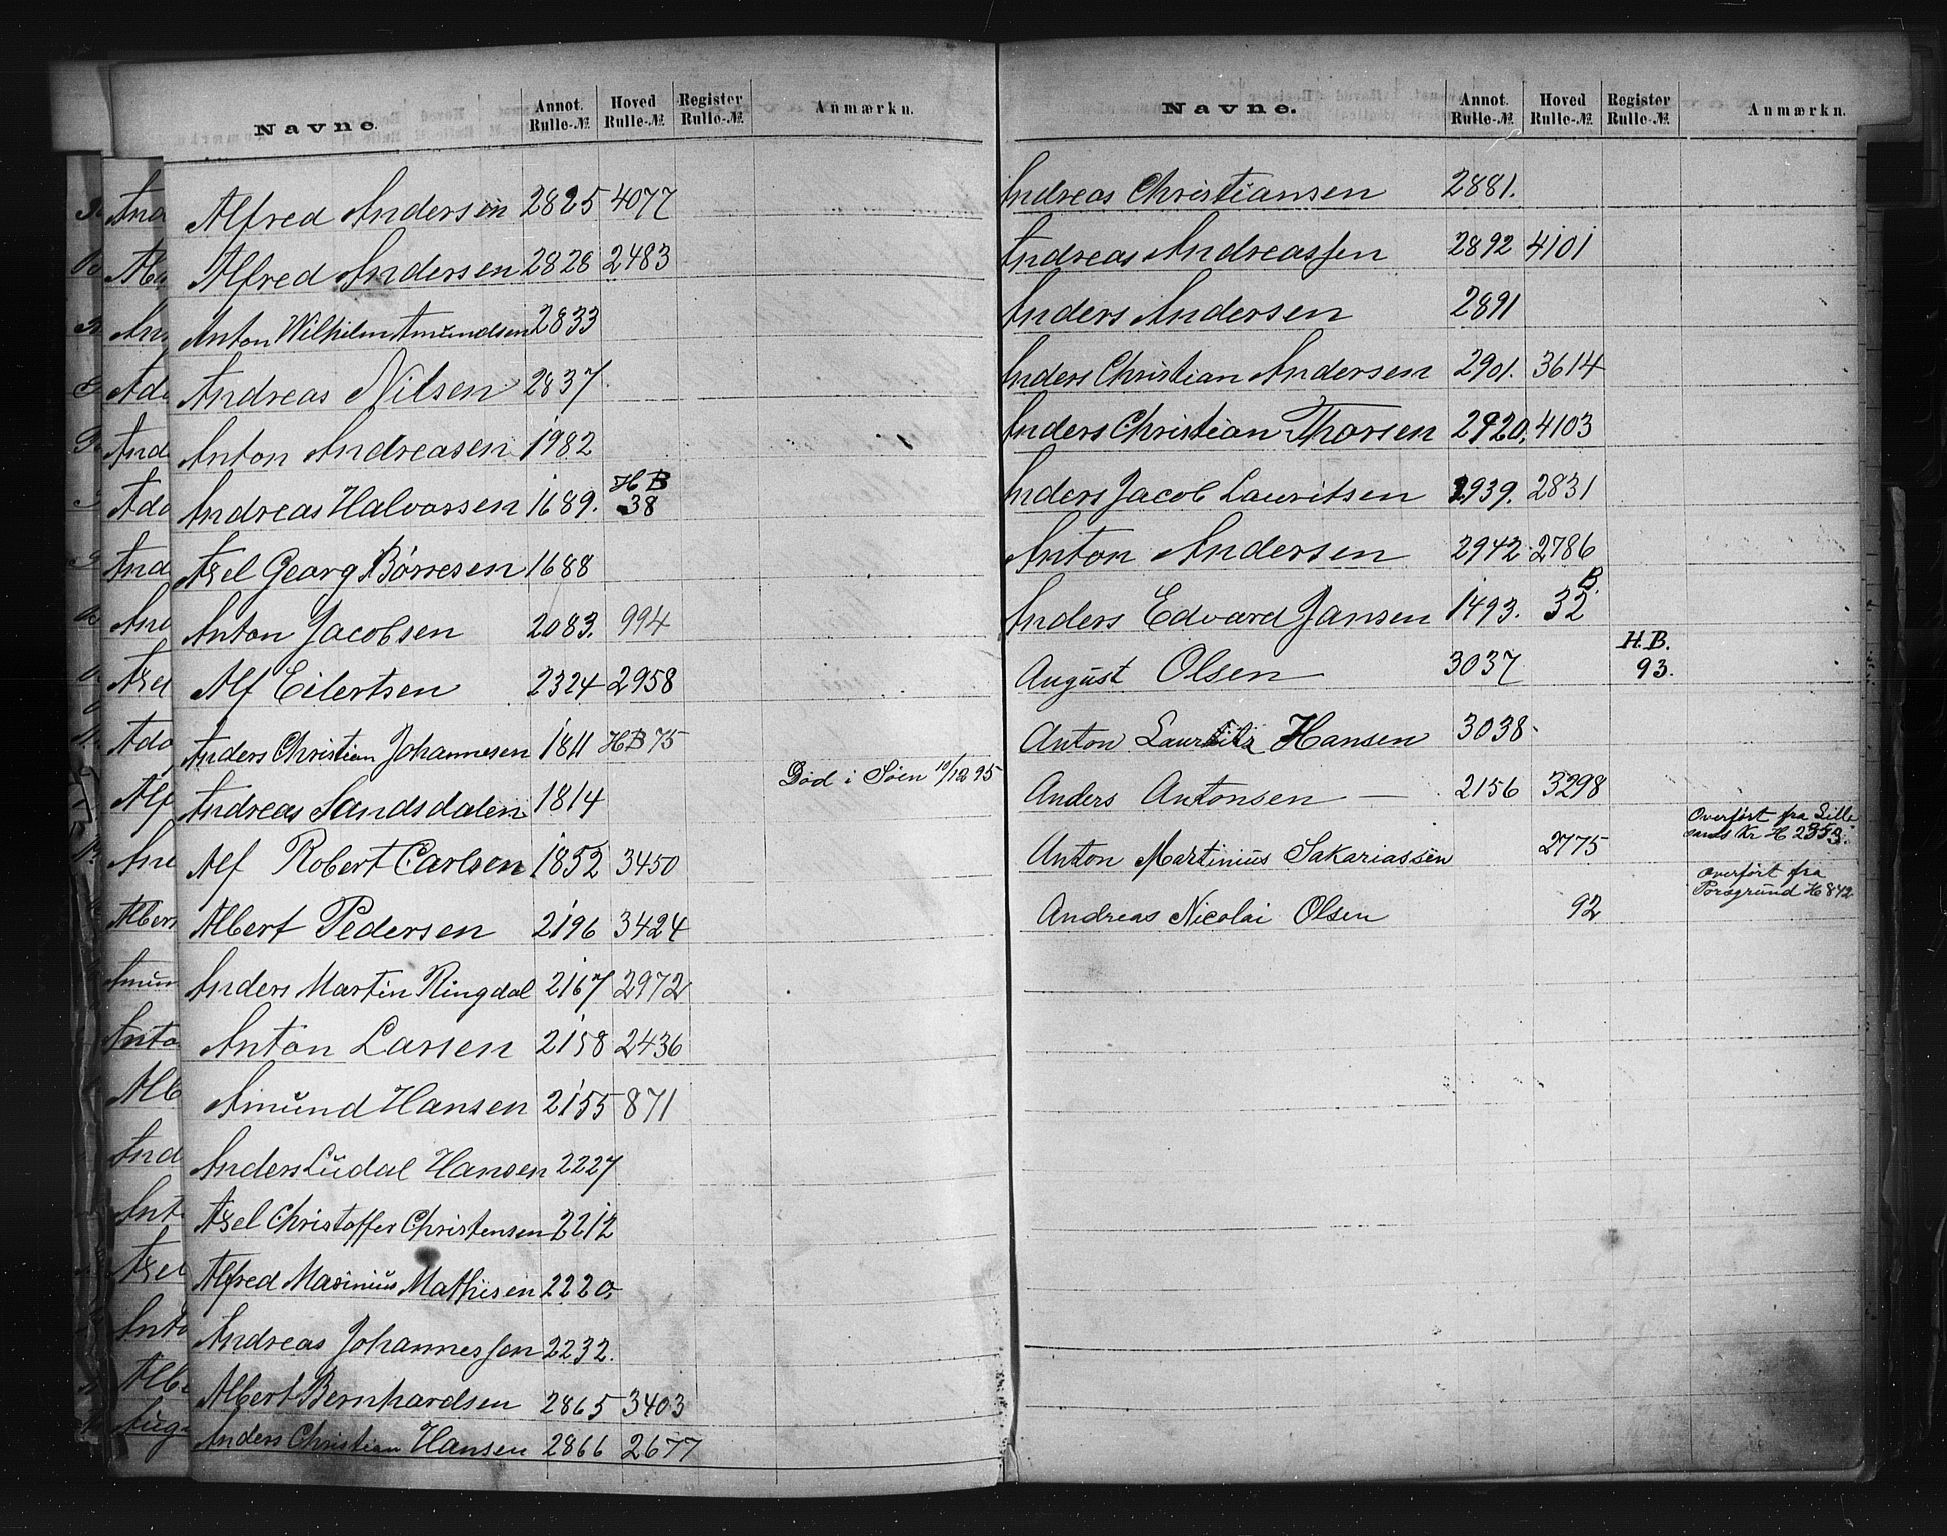 Navne. Annot. Rulle-№ Hoved Rulle-№ Register Rulle-№ Anmærkn.
Alfred Andersen 2825 4077
Alfred Andersen 2828 2483
Anton Wilhelm Amundsen 2833
Andreas Nilsen 2837
Anton Andreasen 1982
Andreas Halvorsen 1689. H B 38
Axel Georg Börresen 1688
Anton Jacobsen 2083. 994
Alf Eilertsen 2324 2958
Anders Christian Johannesen 1811 HB 75
Andreas Sandsdalen 1814 Död i Söen 10/12 95
Alf Robert Carlsen 1852 3450
Albert Pedersen 2196 3424
Anders Martin Ringdal 2167 2972
Anton Larsen 2158 2436
Amund Hansen 2155 871
Anders Ludal Hansen 2227
Axel Christoffer Christensen 2212
Alfred Maxinius Mathisen 2220.
Andreas Johannessen 2232.
Albert Bernhardsen 2865 3403
Anders Christian Hansen 2866 2677
Navne. Annot. Rulle-№ Hoved Rulle-№ Register Rulle-№ Anmærkn.
Andreas Christiansen 2881.
Andreas Andreassen 2892 4101
Anders Andersen 2891
Anders Christian Andersen 2901. 3614
Anders Christian Thorsen 2920. 4103
Anders Jacob Lauritsen 2939. 2831
Anton Andersen 2942 2786
Anders Edvard Jansen 1493. 32 B.
August Olsen 3037 H.B. 93.
Anton Lauritz Hansen 3038-
Anders Antonsen — 2156 3298
Anton Martinius Sakariassen 2775 Overfört fra Lille
sands Kr H 2353.
Andreas Nicolai Olsen 92 Overfört fra
Porsgrund H 842